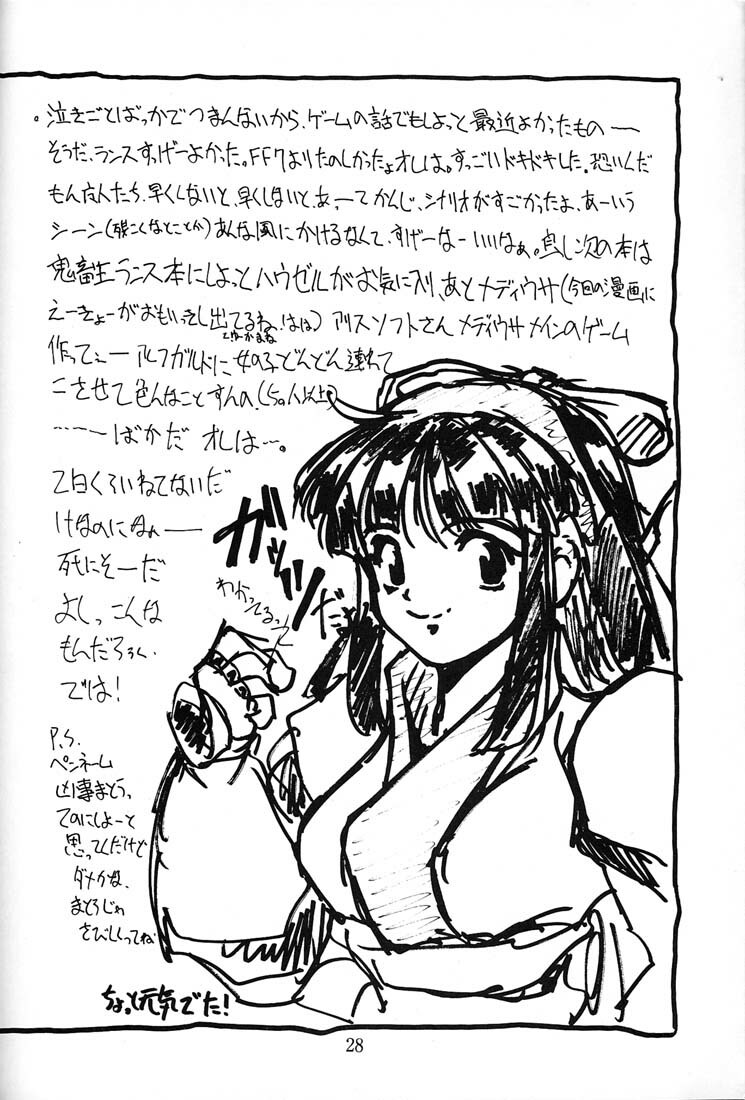 。泣きごとばっかでつまんないから、ゲームの話でもしよっと最近よかったもの——
そうだ、ランスすっげーよかった。FF7よりたのしかったよオレは。すっごいドキドキした。恐いんだ
もん 早くしないと、早くしないと、あ、ーてかんじ、シナリオがすごかったよ、あーいう
シーン(なとことか)あんな風にかけるなんて、すげーなーいいなぁ。良し次の本は
鬼畜王ランス本にしよっとハウゼルがお気に入り、あとメディウサ(今回の漫画に
えーきょーがおもいきし出てるね、はは)アリスソフトさんメディウサメインのゲーム
作ってぇーアルフガルドに女の子どんどん連れて
こさせて色んなことすんの。(50人以上)
……—ばかだ オレは…。
2日くらいねてないだ
けなのになぁ——
死にそーだ
よしっこんな
もんだろぅ、
では!
ガッツ
だっ
わかってるって
P.S.
ペンネーム
凶事まとう、
てのにしよーと
思ってんだけど
ダメかな、
まとうじゃ
さびしくってね
ちょっと元気でた!
28